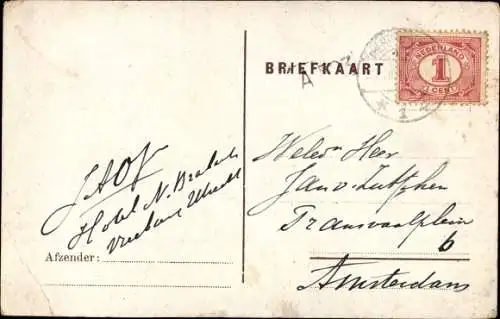 BRIEFKAART
NEDERLAND
1
CENT
1
Hotel N. Brabant
Utrecht
Afzender:
Heer
Jan v. Zutphen
Transvaalplein
6
Amsterdam